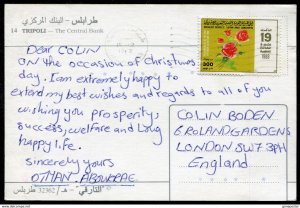 طرابلس - البنك المركزي
14 TRIPOLI - The Central Bank
Dear COLIN
ON the occasion of Christmas
day. I am extremely happy to
extend my best wishes and regards to all of you
wishing you prosperity,
success, welfare and long
happy life.
sincerely yours
OTMAN
19
500
COLIN BODEN
LONDON SW7 3PH
England
طرابلس